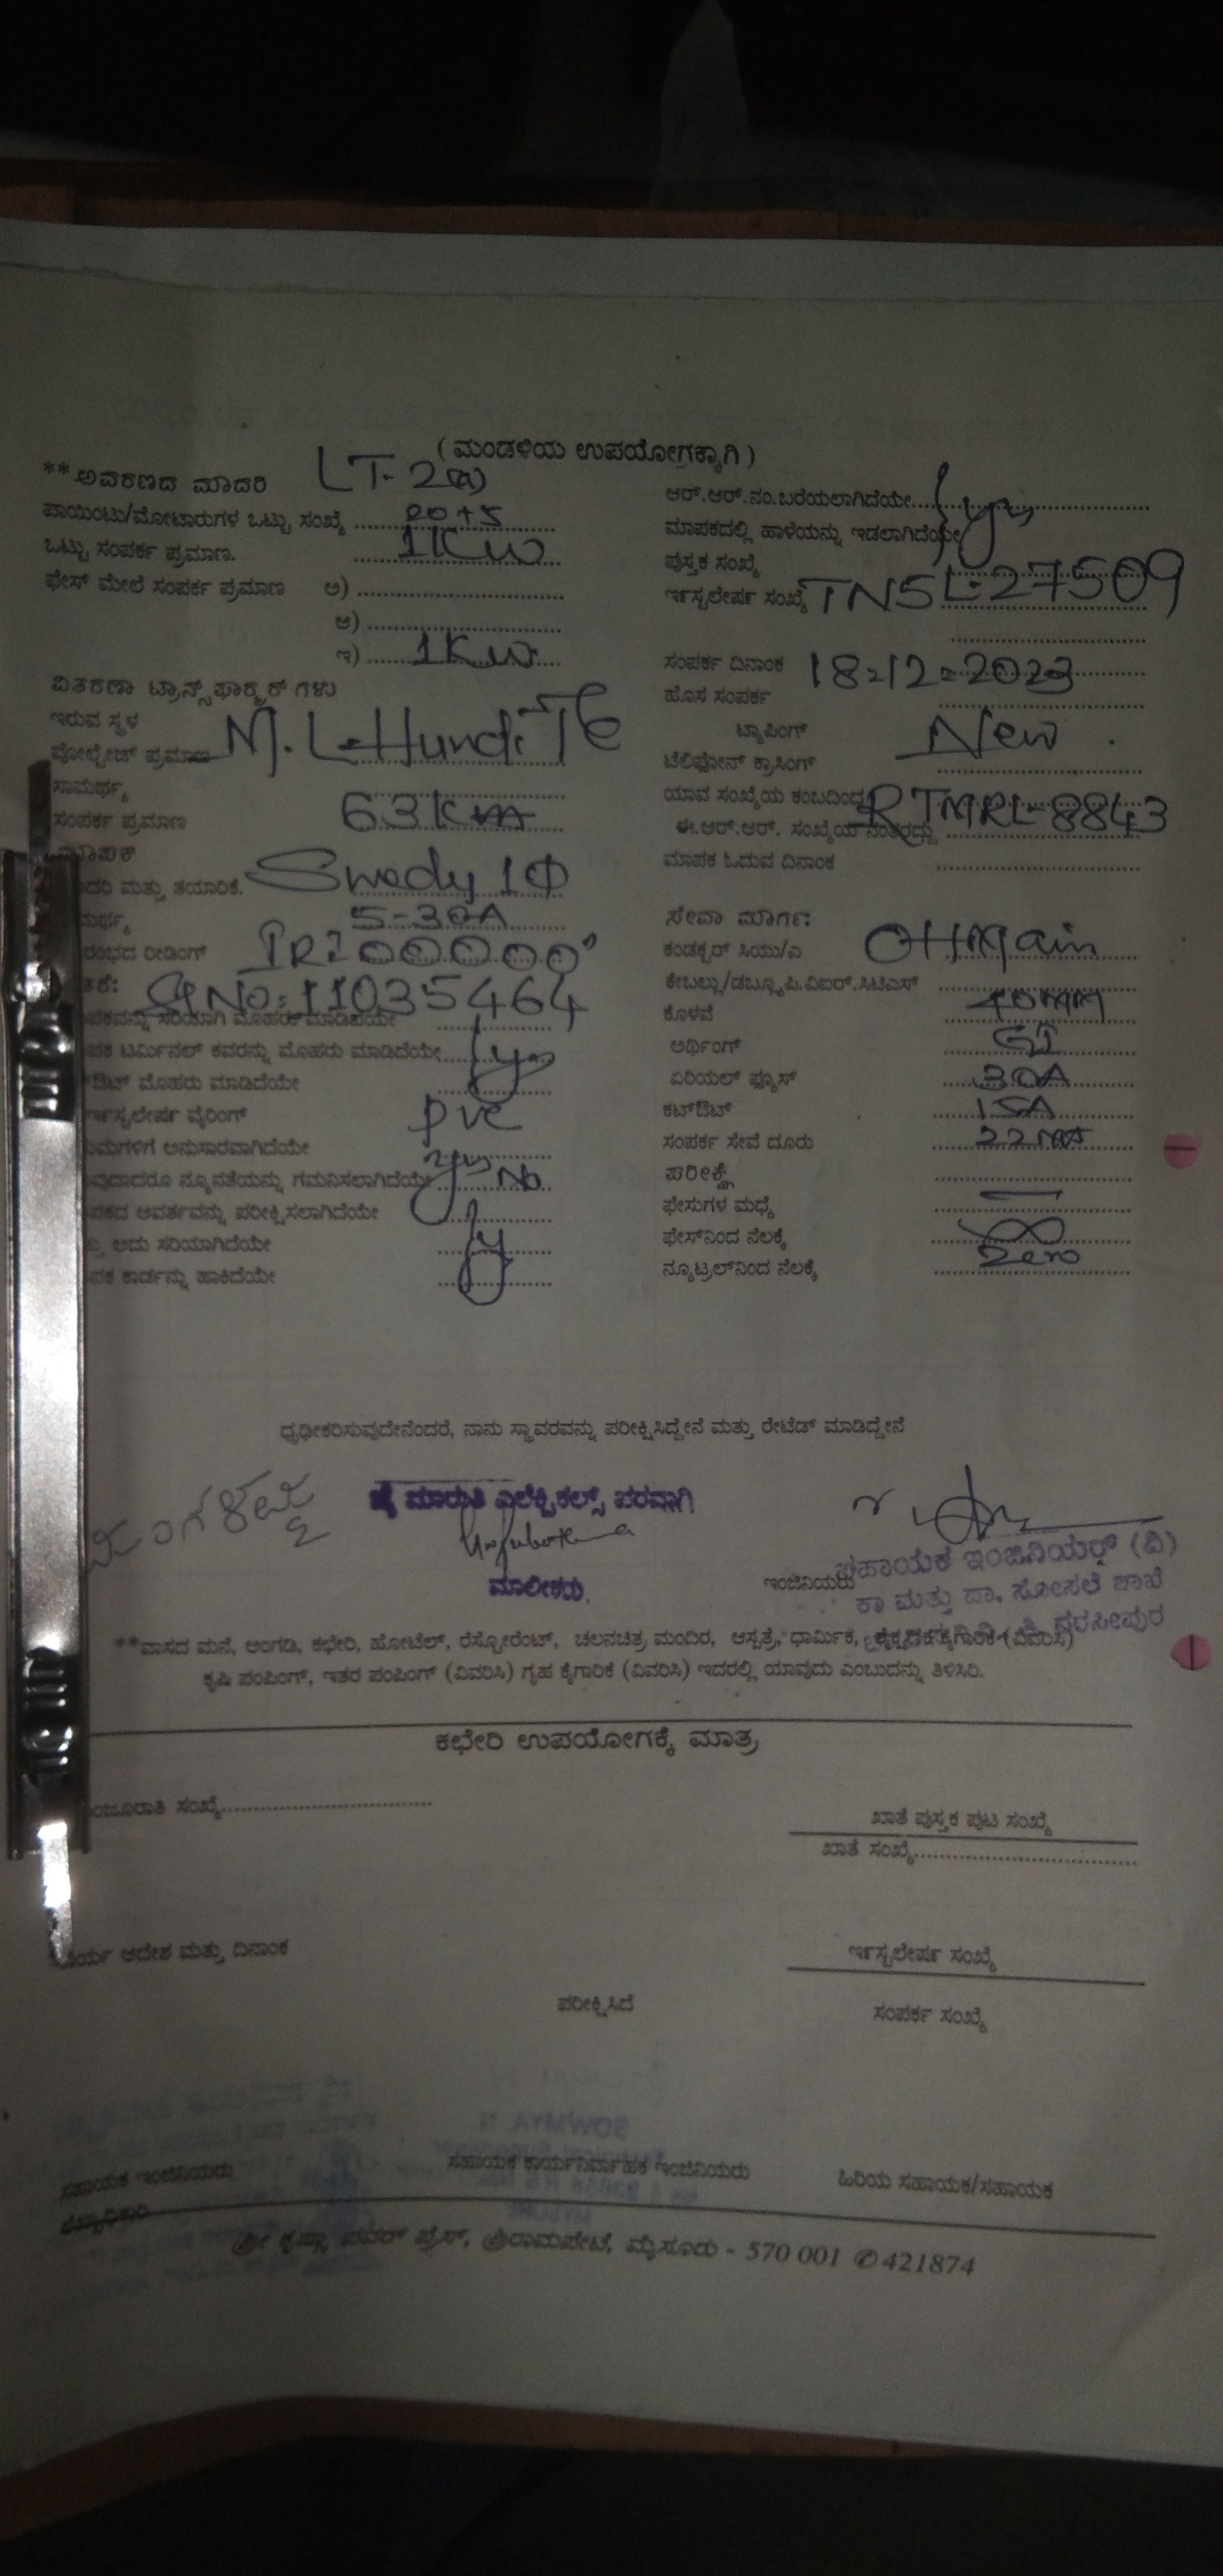 (ಮಂಡಳಿಯ ಉಪಯೋಗಕ್ಕಾಗಿ)
**ಆವರಣದ ಮಾದರಿ LT-2(a)
ಪಾಯಿಂಟು/ಮೋಟಾರುಗಳ ಒಟ್ಟು ಸಂಖ್ಯೆ 20+5
ಒಟ್ಟು ಸಂಪರ್ಕ ಪ್ರಮಾಣ. 1KW
ಫೇಸ್ ಮೇಲೆ ಸಂಪರ್ಕ ಪ್ರಮಾಣ ಅ)
ಆ)
ಇ) 1KW
ವಿತರಣಾ ಟ್ರಾನ್ಸ್‌ಫಾರ್ಮರ್ ಗಳು
ಇರುವ ಸ್ಥಳ
ವೋಲ್ಟೇಜ್ ಪ್ರಮಾಣ M.L-Hundi TC
ಸಾಮರ್ಥ್ಯ
ಸಂಪರ್ಕ ಪ್ರಮಾಣ 63
ಮಾಪಕ
ಮತ್ತು ತಯಾರಿಕೆ. 1Φ
5-30A
ರೀಡಿಂಗ್ IR: 00000
Sl No: 11035464
ಸರಿಯಾಗಿ ಮೊಹರು ಮಾಡಿದೆಯೇ
ಟರ್ಮಿನಲ್ ಕವರನ್ನು ಮೊಹರು ಮಾಡಿದೆಯೇ yes
ಮೊಹರು ಮಾಡಿದೆಯೇ
ವೈರಿಂಗ್ pvc
ಅನುಸಾರವಾಗಿದೆಯೇ yes
ನ್ಯೂನತೆಯನ್ನು ಗಮನಿಸಲಾಗಿದೆಯೇ No
ಆವರ್ತವನ್ನು ಪರೀಕ್ಷಿಸಲಾಗಿದೆಯೇ
ಅದು ಸರಿಯಾಗಿದೆಯೇ
ಕಾರ್ಡನ್ನು ಹಾಕಿದೆಯೇ
ಆರ್.ಆರ್.ನಂ.ಬರೆಯಲಾಗಿದೆಯೇ yes
ಮಾಪಕದಲ್ಲಿ ಹಾಳೆಯನ್ನು ಇಡಲಾಗಿದೆಯೇ
ಪುಸ್ತಕ ಸಂಖ್ಯೆ
ಇನ್ಸ್ಟಲೇಷನ್ ಸಂಖ್ಯೆ TNSL-27509
ಸಂಪರ್ಕ ದಿನಾಂಕ 18-12-2023
ಹೊಸ ಸಂಪರ್ಕ
ಟ್ಯಾಪಿಂಗ್ New
ಟೆಲಿಫೋನ್ ಕ್ರಾಸಿಂಗ್
ಯಾವ ಸಂಖ್ಯೆಯ ಕಂಬದಿಂದ RTMRL-8843
ಈ.ಆರ್.ಆರ್. ಸಂಖ್ಯೆಯ ನಂತರದ್ದು
ಮಾಪಕ ಓದುವ ದಿನಾಂಕ
ಸೇವಾ ಮಾರ್ಗ:
ಕಂಡಕ್ಟರ್ ಸಿಯು/ಎ OH Main
ಕೇಬಲ್ಲು/ಡಬ್ಲ್ಯೂ.ಪಿ.ವಿಐರ್.ಸಿಟಿಎಸ್
ಕೊಳವೆ
ಅರ್ಥಿಂಗ್ GI
ಏರಿಯಲ್ ಫ್ಯೂಸ್ 30A
ಕಟ್‌ಔಟ್ 15A
ಸಂಪರ್ಕ ಸೇವೆ ದೂರು
ಪರೀಕ್ಷೆ
ಫೇಸುಗಳ ಮಧ್ಯೆ —
ಫೇಸ್‌ನಿಂದ ನೆಲಕ್ಕೆ ∞
ನ್ಯೂಟ್ರಲ್‌ನಿಂದ ನೆಲಕ್ಕೆ Zero
ಧೃಢೀಕರಿಸುವುದೇನೆಂದರೆ, ನಾನು ಸ್ಥಾವರವನ್ನು ಪರೀಕ್ಷಿಸಿದ್ದೇನೆ ಮತ್ತು ರೇಟೆಡ್ ಮಾಡಿದ್ದೇನೆ
ಮಾರುತಿ ಎಲೆಕ್ಟ್ರಿಕಲ್ಸ್ ಪರವಾಗಿ
ಮಾಲೀಕರು.
ಇಂಜಿನಿಯರು
ಸಹಾಯಕ ಇಂಜಿನಿಯರ್ (ವಿ)
ಕಾ ಮತ್ತು ಪಾ. ಸೋಸಲೆ ಶಾಖೆ
ನರಸೀಪುರ
**ವಾಸದ ಮನೆ, ಅಂಗಡಿ, ಕಛೇರಿ, ಹೋಟೆಲ್, ರೆಸ್ಟೋರೆಂಟ್, ಚಲನಚಿತ್ರ ಮಂದಿರ, ಆಸ್ಪತ್ರೆ, ಧಾರ್ಮಿಕ, ಕೈಗಾರಿಕೆ (ವಿವರಿಸಿ)
ಕೃಷಿ ಪಂಪಿಂಗ್, ಇತರ ಪಂಪಿಂಗ್ (ವಿವರಿಸಿ) ಗೃಹ ಕೈಗಾರಿಕೆ (ವಿವರಿಸಿ) ಇದರಲ್ಲಿ ಯಾವುದು ಎಂಬುದನ್ನು ತಿಳಿಸಿರಿ.
ಕಛೇರಿ ಉಪಯೋಗಕ್ಕೆ ಮಾತ್ರ
ಮಂಜೂರಾತಿ ಸಂಖ್ಯೆ
ಖಾತೆ ಪುಸ್ತಕ ಪುಟ ಸಂಖ್ಯೆ
ಖಾತೆ ಸಂಖ್ಯೆ
ಕಾರ್ಯ ಆದೇಶ ಮತ್ತು ದಿನಾಂಕ
ಇನ್ಸ್ಟಲೇಷನ್ ಸಂಖ್ಯೆ
ಪರೀಕ್ಷಿಸಿದೆ
ಸಂಪರ್ಕ ಸಂಖ್ಯೆ
ಸಹಾಯಕ ಇಂಜಿನಿಯರು
ಸಹಾಯಕ ಕಾರ್ಯನಿರ್ವಾಹಕ ಇಂಜಿನಿಯರು
ಹಿರಿಯ ಸಹಾಯಕ/ಸಹಾಯಕ
ಶ್ರೀ ಕೃಷ್ಣಾ ಪವರ್ ಪ್ರೆಸ್, ಶ್ರೀರಾಮಪೇಟೆ, ಮೈಸೂರು - 570 001 ✆ 421874